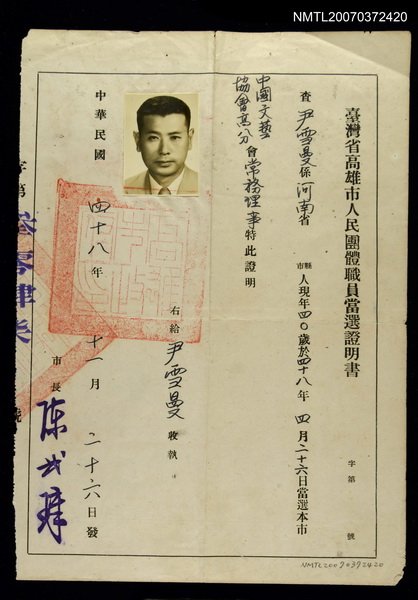 NMTL20070372420
臺灣省高雄市人民團體職員當選證明書
字第 號
查 尹雪曼係河南省 縣市 人現年四〇歲於四十八年 四月二十六日當選本市
中國文藝協會高分會常務理事特此證明
右給 尹雪曼 收執
市長 陈武璋
中華民國 四十八年 十一月 二十六日發
字第
NMTL20070372420